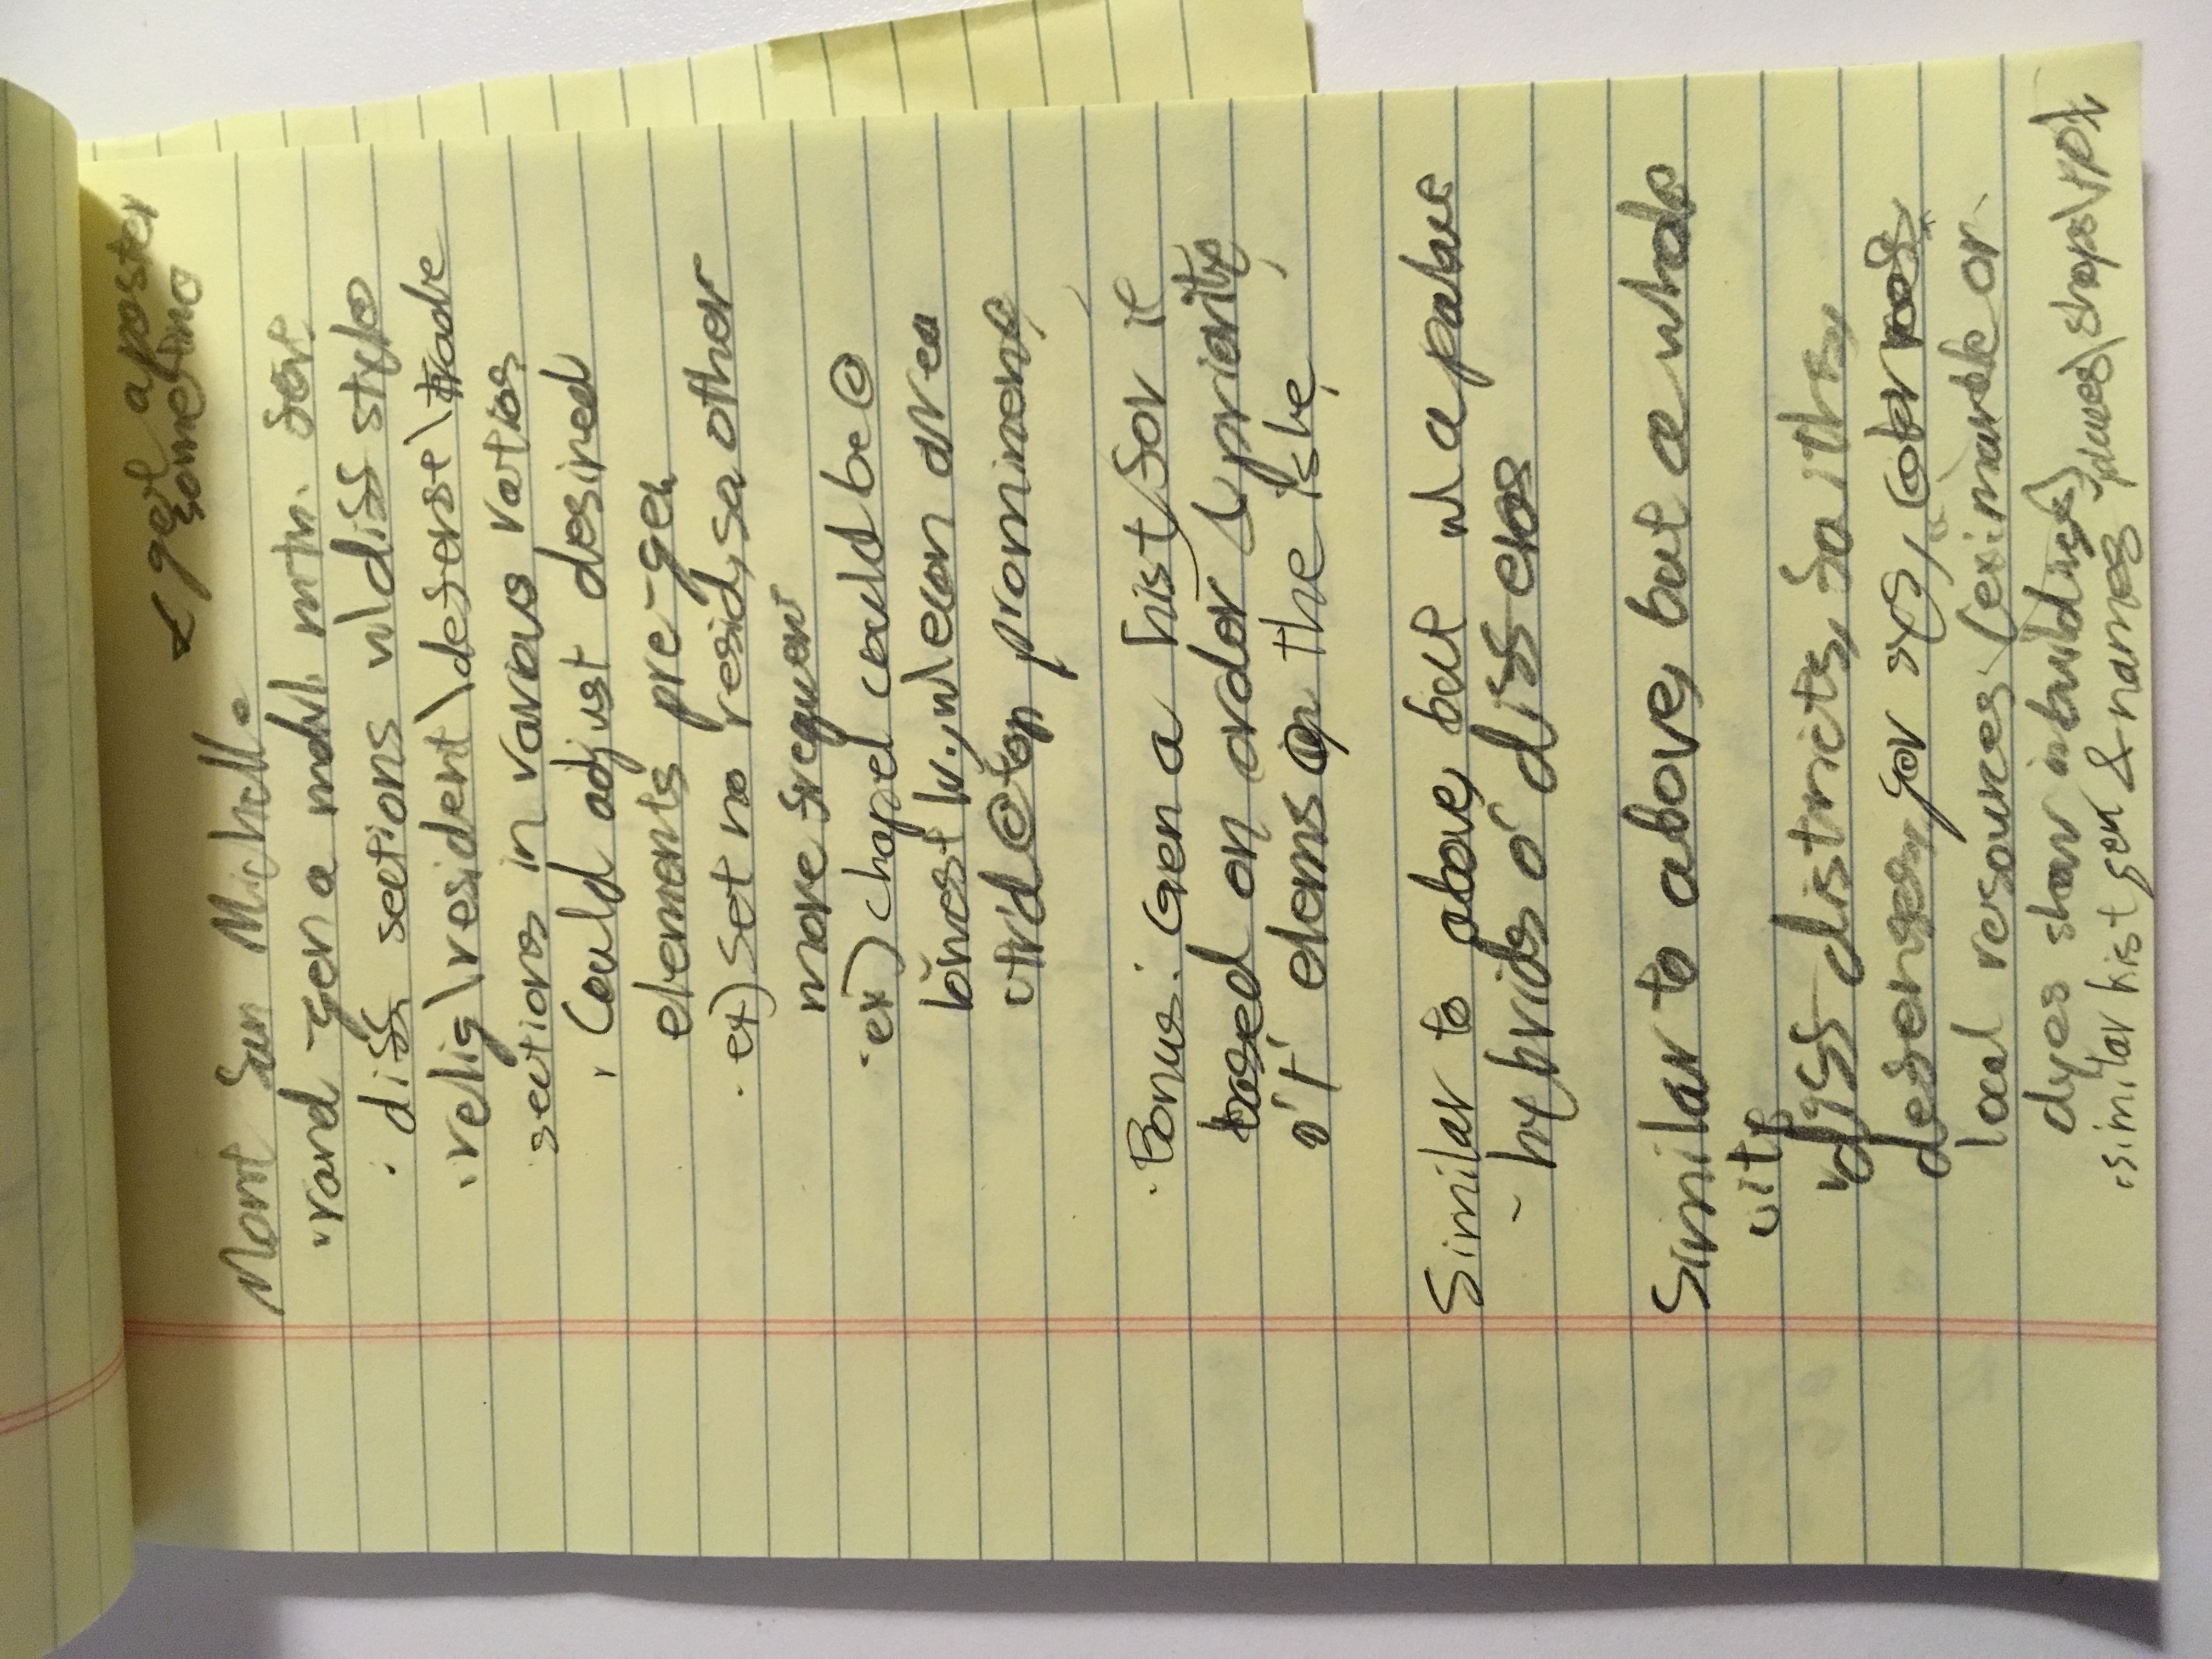 < get a poster
sometime
Mont San Michelle
· rand-gen a mdvl. mtn. fort
· diff sections w\ diff style
· relig\resident\defense\trade
sections in various ratios
· Could adjust desired
elements pre-gen
· ex) set no resid, so other
more frequent
· ex) chapel could be @
lowest lv., w\ econ area
ctr'd @ top prominently
· Bonus: Gen a hist for it
based on order & priority
o' t' elems on the isle
Similar to above, but w\ a palace
- hybrids o' diff eras
Similar to above, but a whole
city
· diff districts, faiths,
defenses, gov sys, color roofs,
local resources (ex: marble or
dyes show in buildings)
· similar hist gen & names - places\shops\ppl